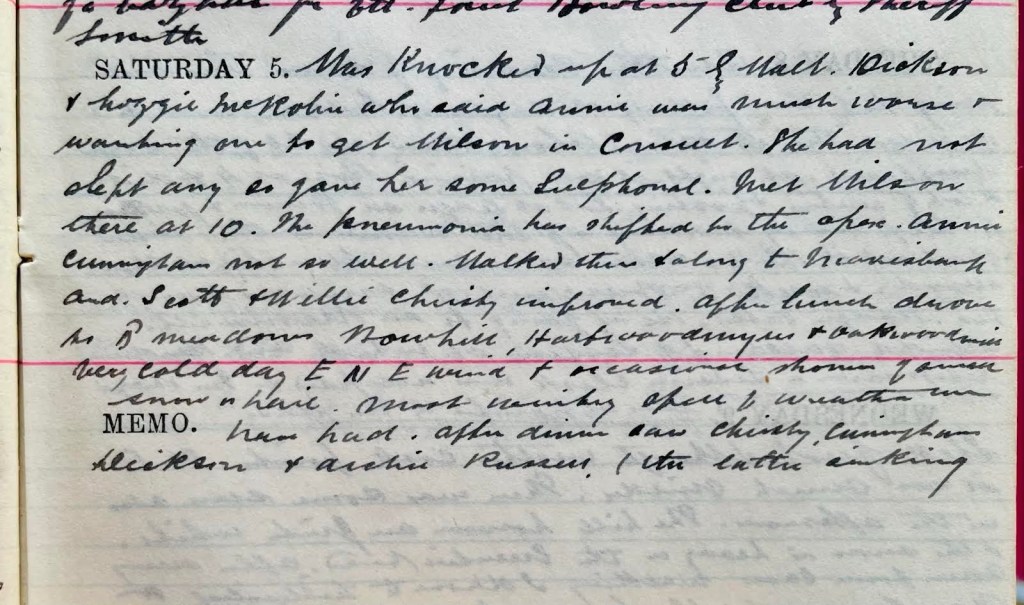 for Bowling Club & Sheriff
Smith
SATURDAY 5. Was Knocked up at 5 by Walt. Dickson
& Lizzie McRobie who said Annie was much worse &
wanting me to get Wilson in Consult. She had not
slept any so gave her some Sulphonal. Met Wilson
there at 10. The pneumonia has shifted to the apex. Annie
Cunningham not so well. Walked there & along to
And. Scott & Willie Christy improved. After lunch drove
to B meadows Bowhill, Hartwoodmyres & Oakwoodmill
Very cold day E N E wind & occasional showers of
snow & hail. Most wintry spell of weather we
MEMO. have had. After dinner saw Christy, Cunningham
Dickson & Archie Russell. (the latter sinking